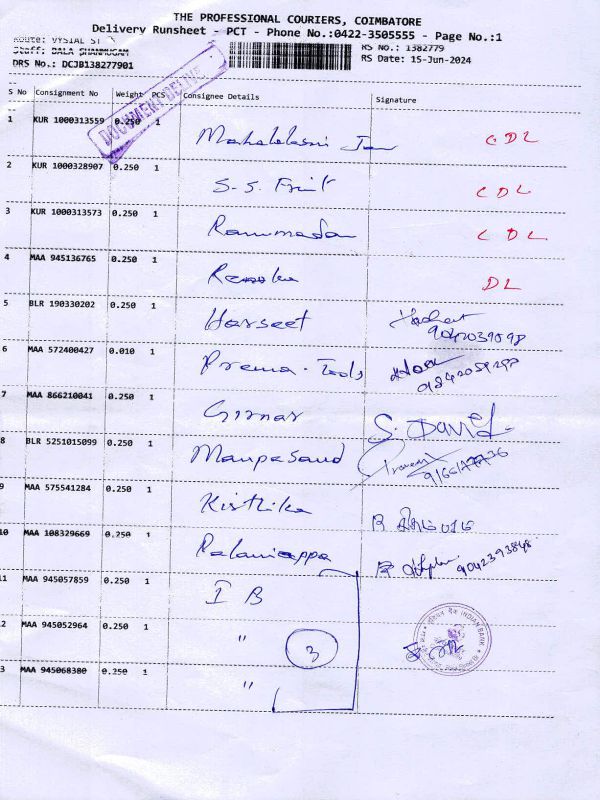 THE PROFESSIONAL COURIERS, COIMBATORE
Delivery Runsheet - PCT - Phone No.:0422-3505555 - Page No.:1
Route: VYSIAL ST
Staff: BALA SHANMUGAM RS No.: 1382779
DRS No.: DCJB138277901 RS Date: 15-Jun-2024
S No Consignment No Weight PCS Consignee Details Signature
DOCUMENT
1 KUR 1000313559 0.250 1 CDL
2 KUR 1000328907 0.250 1 S.S. Fruit CDL
3 KUR 1000313573 0.250 1 CDL
4 MAA 945136765 0.250 1 Renuka DL
5 BLR 190330202 0.250 1 Harseet
6 MAA 572400427 0.010 1 Prema. Tools
7 MAA 866210041 0.250 1 Girnar S. David
8 BLR 5251015099 0.250 1 Manpasand
9 MAA 575541284 0.250 1 Kisthika
10 MAA 108329669 0.250 1 Palaniappa 9042393848
11 MAA 945057859 0.250 1 I B
2 MAA 945052964 0.250 1 " 3 INDIAN BANK
3 MAA 945068380 0.250 1 "